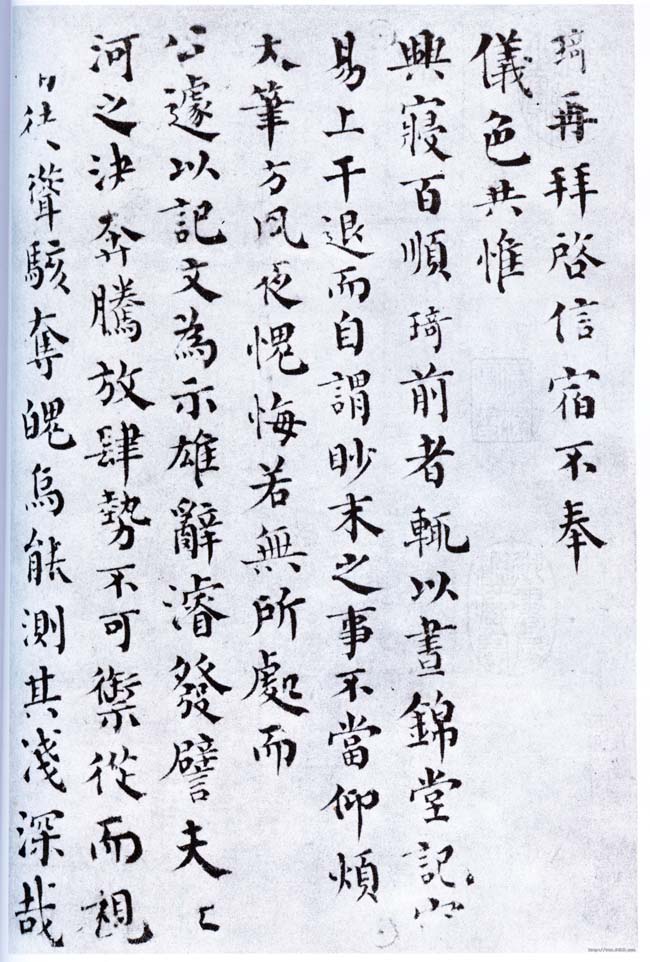 琦再拜啓信宿不奉
儀色共惟
興寢百順琦前者輒以晝錦堂記
易上干退而自謂眇末之事不當仰煩
大筆方夙夜愧悔若無所處而
公遽以記文為示雄辭濬發譬夫
河之決奔騰放肆勢不可禦從而視
徃〻聳駭奪魄烏能測其淺深哉